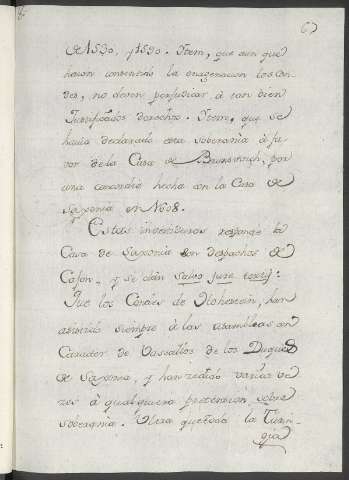 67
de 1530, y 1590. Item, que aun que
hayan consentido la enagenacion los Con-
des, no deven perjudicar à tan bien
Justificados derechos. Item, que se
havia declarado esta soberania à fa-
vor de la Casa de Brunswich, por
una concordia hecha con la Casa de
Saxonia en
Estas investiduras responde la
Casa de Saxonia son despachos de
Cajon, y se dàn salvo jure tertij:
Que los Condes de Holnstein, han
assistido siempre à las asambleas en
Caracter de Vassallos de los Duques
de Saxonia, y han cedido varias ve-
zes à qualquiera pretension sobre
soberania. Otra question la Turin-
gia